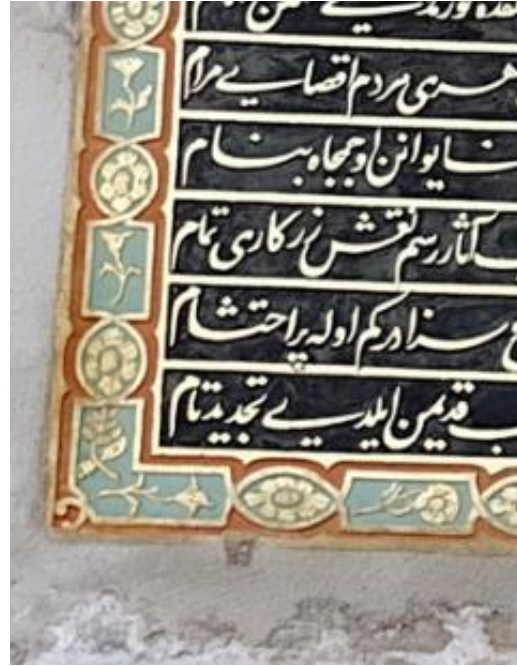 مردم اقصایے مرام
اوجمجاه بنام
آثار رسم نقش زرکاری تمام
سزادرکم اوله پراحتشام
قدیمن ایلدیے تجدید تام